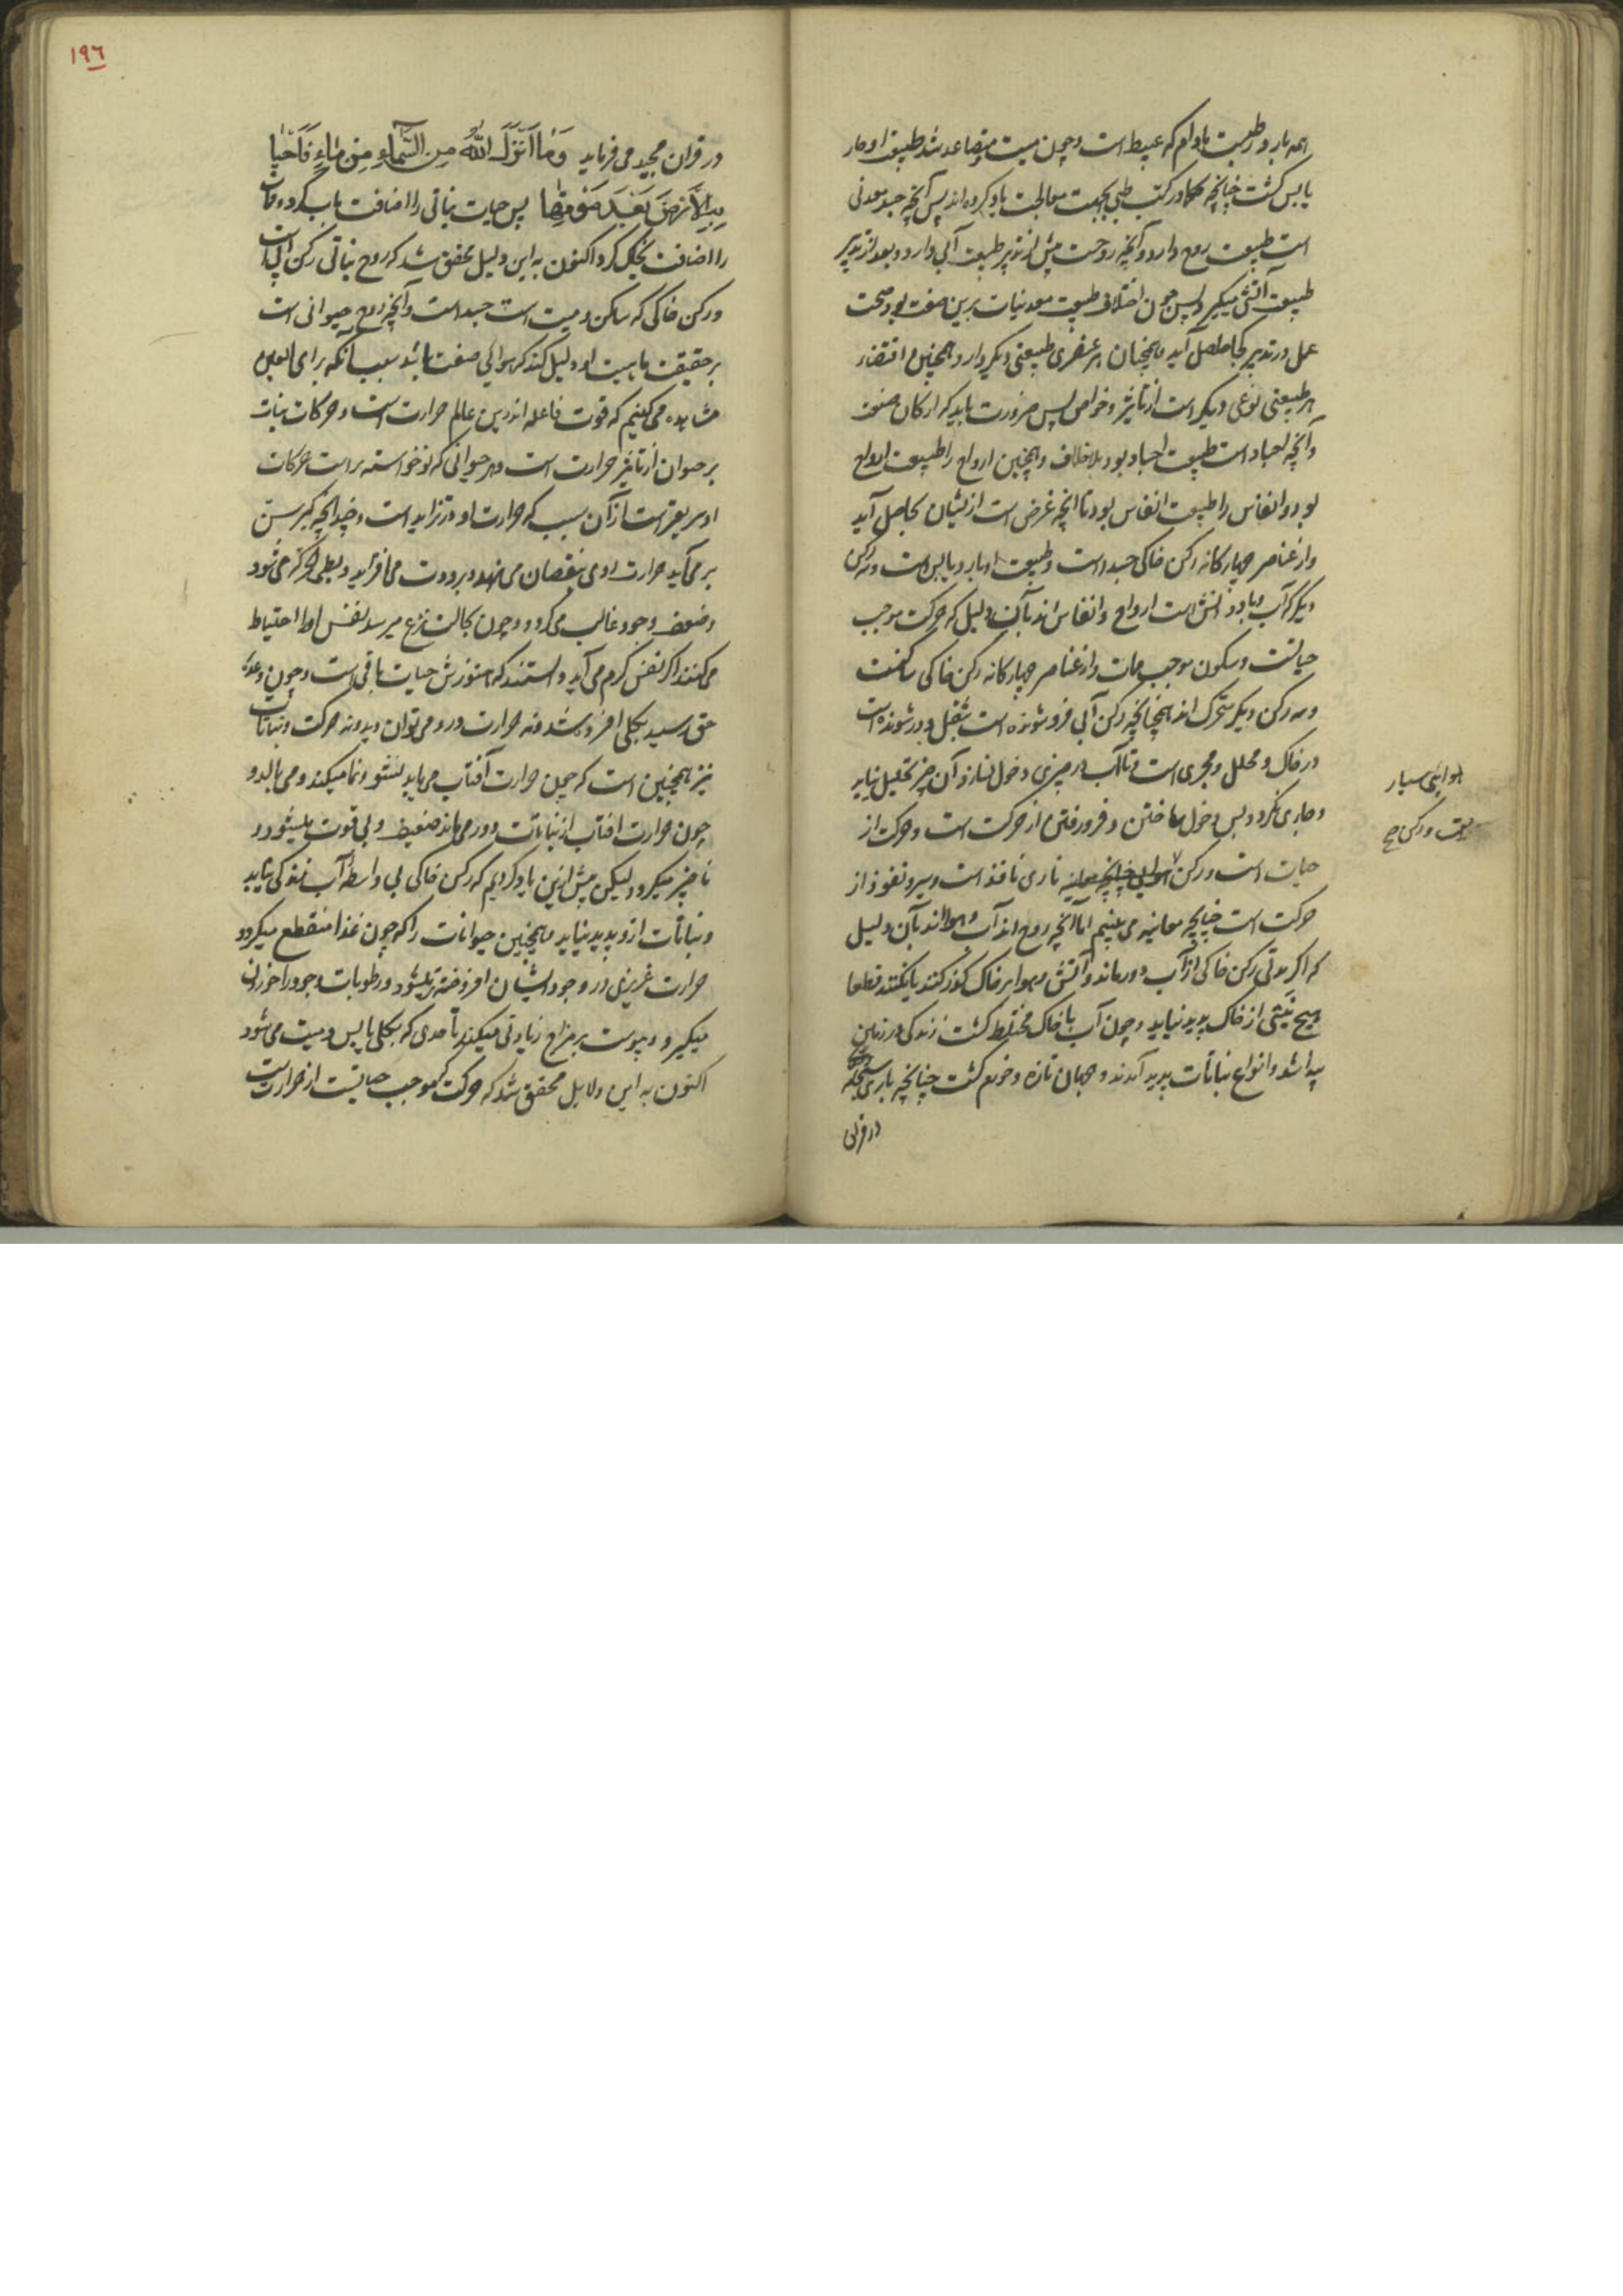 همه بارد و رطبت مادام که عبیط است و چون میت متصاعد شد طبیعت او حار
یابس گشت چنانچه حکما در کتب طبی بجهت معالجت یاد کرده اند پس آنچه جسد معدنی
است طبیعت روح دارد و آنچه روحست پیش از تدبیر طبیعت آبی دارد و بعد از تدبیر
طبیعت آتشی میگیرد پس چون اختلاف طبیعت معدنیات برین صفت بود صحت
عمل و تدبیر کجا حاصل آید همچنان هر عنصری طبیعتی دیگر دارد و همچنین اقتضاء
هر طبیعتی نوعی دیگر است از تأثیر و خواص پس ضرورت باید که ارکان صنعت
و آنچه اجساد است طبیعت اجساد بود بلا خلاف و همچنین ارواح را طبیعت ارواح
بود و انفاس را طبیعت انفاس بود تا آنچه غرض است از ایشان بحاصل آید
و از عناصر چهارگانه رکن خاکی جسد است و طبیعت او بارد و یابس است و سه رکن
دیگر که آب و باد و آتش است ارواح و انفاس اند بآن دلیل که حرکت موجب
حیاتست و سکون موجب ممات و از عناصر چهارگانه رکن خاکی ساکنست
و سه رکن دیگر متحرک اند همچنانچه رکن آبی فرو شونده است بثقل و در شونده است
در خاک و محلل و مجری است و تا آب در چیزی دخول نسازد آن چیز تحلیل نیابد
و جاری نگردد پس دخول ساختن و فرو رفتن از حرکت است و حرکت از
حیات است و رکن ناری نافذ است و سیر و نفوذ از
هوایی سیار
است و رکن صح
حرکت است چنانچه معاینه می بینیم اما آنچه روح اند آب و هوا اند بآن دلیل
که اگر مدتی رکن خاکی از آب دور ماند و آتش و هوا بر خاک گذر کنند یا نکنند قطعا
هیچ نبتی از خاک پدید نیاید و چون آب با خاک مختلط گشت زندگی در زمین
پیدا شد و انواع نباتات پدید آمدند و جهان تازه و خرم گشت چنانچه باری سبحانه
در قرآن
۱۹٦
در قرآن مجید می فرماید وَمَا اَنْزَلَ اللّٰهُ مِنَ السَّمَاءِ مِنْ مَاءٍ فَاَحْيَا
بِهِ الْاَرْضَ بَعْدَ مَوْتِهَا پس حیات نباتی را اضافت بآب کرد و ممات
را اضافت بخاک کرد اکنون به این دلیل محقق شد که روح نباتی رکن آب است
و رکن خاکی که ساکن و میت است جسد است و آنچه روح حیوانی است
بر حقیقت ماهیت او دلیل کند که هوایی صفت باشد سبب آنکه برای العین
مشاهده می کنیم که قوت فاعله اندرین عالم حرارت است و حرکات نبات
بر حیوان از تأثیر حرارت است و هر حیوانی که نوخواسته تر است حرکات
او سریعتر است از آن سبب که حرارت او در تزاید است و چندانچه کبر سن
بر می آید حرارت او می بنقصان می نهد و برودت می افزاید و بطی الحرکة می شود
و ضعف وجود غالب می گردد و چون بحالت نزع میرسد نفس او را احتیاط
می کنند اگر نفس گرم می آید دانستند که هنوزش حیات باقی است و چون وعده
حق رسید بکلی افسرده شد و نه حرارت درو می توان دید و نه حرکت و نباتات
نیز همچنین است که چون حرارت آفتاب می یابد نشو و نما میکند و می بالد و
چون حرارت افتاب از نباتات دور می ماند ضعیف و بی قوت میشود و
ناچیز میگردد لیکن پیش ازین یاد کردیم که رکن خاکی بی واسطه آب زندگی نیابد
و نباتات ازو پدید نیاید همچنین حیوانات را که چون غذا منقطع میگردد
حرارت غریزی در وجود ایشان افروخته تر میشود و رطوبات وجود را خوردن
میگیرد و یبوست بر مزاج زیادتی میکند تا حدی که بکلی یابس و میت می شود
اکنون به این دلایل محقق شد که حرکت که موجب حیاتست از حرارت است